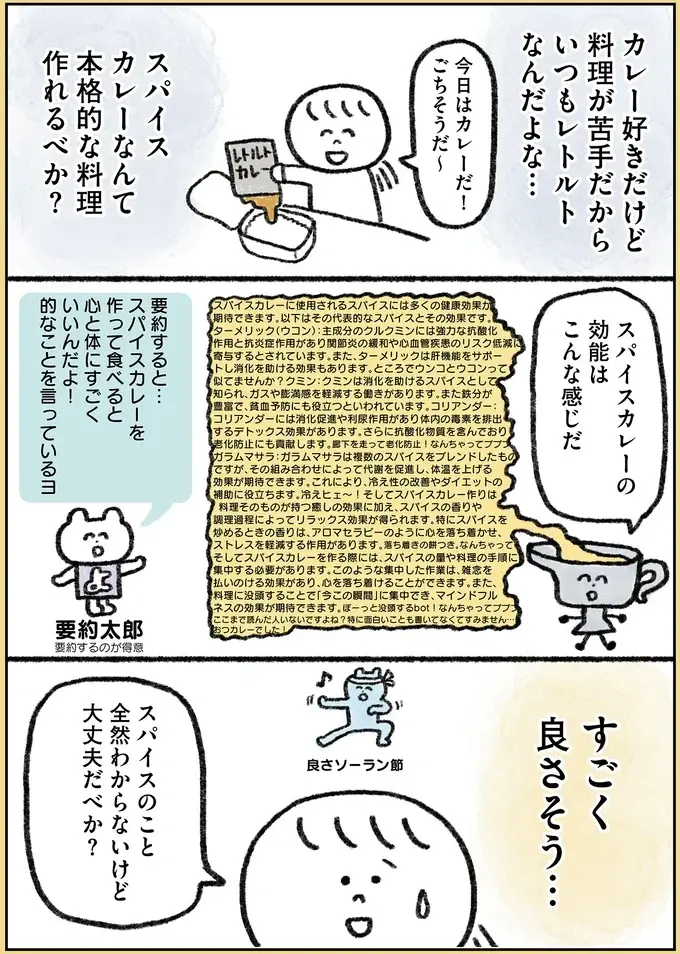 カレー好きだけど
料理が苦手だから
いつもレトルト
なんだよな…
今日はカレーだ！
ごちそうだ〜
レトルト
カレー
スパイス
カレーなんて
本格的な料理
作れるべか？
スパイスカレーの
効能は
こんな感じだ
スパイスカレーに使用されるスパイスには多くの健康効果が
期待できます。以下はその代表的なスパイスとその効果です。
ターメリック(ウコン)：主成分のクルクミンには強力な抗酸化
作用と抗炎症作用があり関節炎の緩和や心血管疾患のリスク低減に
寄与するとされています。また、ターメリックは肝機能をサポー
トし消化を助ける効果もあります。ところでウンコとウコンって
似てませんか？クミン：クミンは消化を助けるスパイスとして
知られ、ガスや膨満感を軽減する働きがあります。また鉄分が
豊富で、貧血予防にも役立つといわれています。コリアンダー：
コリアンダーには消化促進や利尿作用があり体内の毒素を排出
するデトックス効果があります。さらに抗酸化物質を含んでおり
老化防止にも貢献します。廊下を走って老化防止！なんちゃってプププ
ガラムマサラ：ガラムマサラは複数のスパイスをブレンドしたもの
ですが、その組み合わせによって代謝を促進し、体温を上げる
効果が期待できます。これにより、冷え性の改善やダイエットの
補助に役立ちます。冷えヒェ〜！そしてスパイスカレー作りは
料理そのものが持つ癒しの効果に加え、スパイスの香りや
調理過程によってリラックス効果が得られます。特にスパイスを
炒めるときの香りは、アロマセラピーのように心を落ち着かせ、
ストレスを軽減する作用があります。落ち着きの餅つき。なんちゃって
そしてスパイスカレーを作る際には、スパイスの量や料理の手順に
集中する必要があります。このような集中した作業は、雑念を
払いのける効果があり、心を落ち着けることができます。また、
料理に没頭することで「今この瞬間」に集中でき、マインドフル
ネスの効果が期待できます。ぼーっと没頭するbot！なんちゃってプププ
ここまで読んだ人いないですよね？特に面白いことも書いてなくてすみません…
おつカレーでした！
要約すると…
スパイスカレーを
作って食べると
心と体にすごく
いいんだよ！
的なことを言っているヨ
よ
要約太郎
要約するのが得意
すごく
良さそう…
良さソーラン節
スパイスのこと
全然わからないけど
大丈夫だべか？